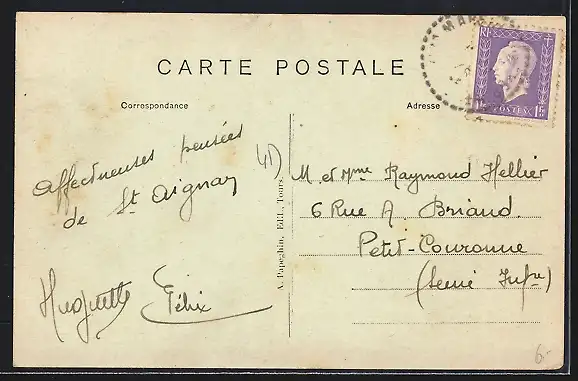 CARTE POSTALE
Correspondance
Adresse
RF
POSTES
1F
Affectueuses pensées
de St Aignan
41)
Huguette Félix
A. Papeghin, Edit., Tours.
M. et Mme Raymond Hellier
6 Rue A. Briand
Petit-Couronne
(Seine Infre)
6.-